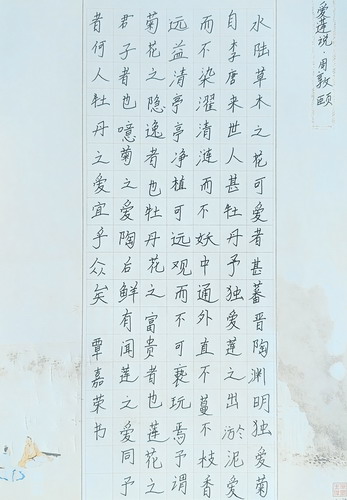 爱莲说·周敦颐
水陆草木之花可爱者甚蕃晋陶渊明独爱菊
自李唐来世人甚牡丹予独爱莲之出淤泥爱
而不染濯清涟而不妖中通外直不蔓不枝香
远益清亭亭净植可远观而不可亵玩焉予谓
菊花之隐逸者也牡丹花之富贵者也莲花之
君子者也噫菊之爱陶后鲜有闻莲之爱同予
者何人牡丹之爱宜乎众矣 覃嘉荣书